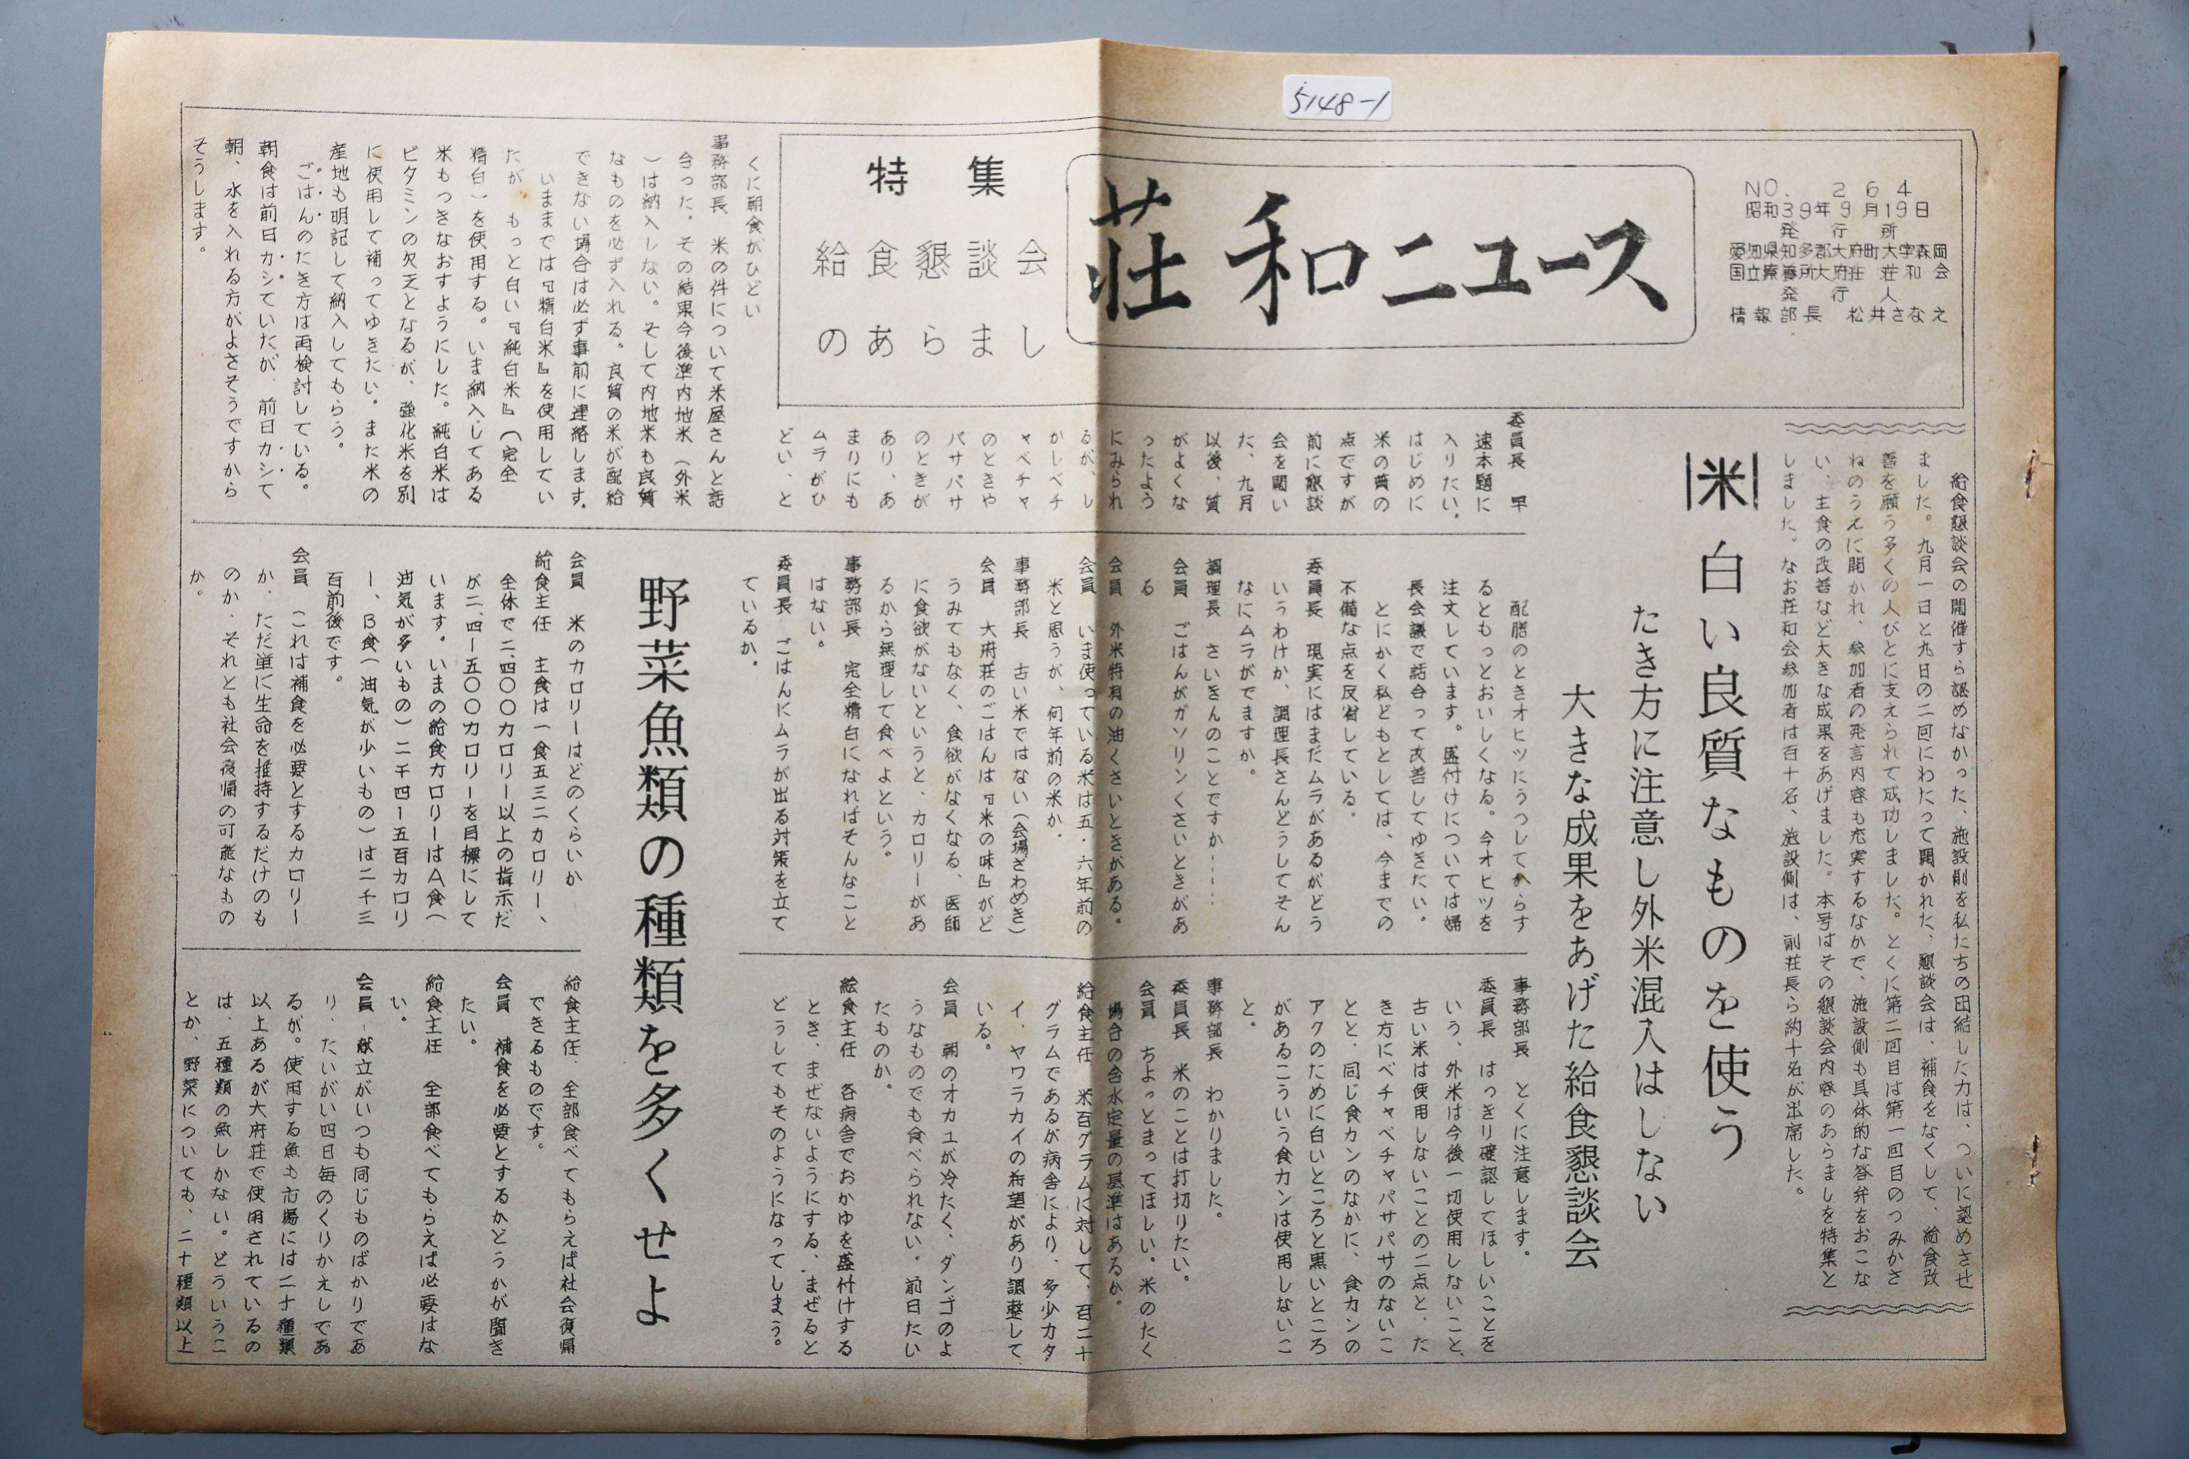 5148-1
荘和ニュース
NO. 264
昭和39年9月19日
発行所
愛知県知多郡大府町大字森岡
国立療養所大府荘 荘和会
発行人
情報部長 松井さなえ
特集
給食懇談会
のあらまし
給食懇談会の開催すら認めなかった、施設側を私たちの団結した力は、ついに認めさせ
ました。九月一日と九日の二回にわたって開かれた、懇談会は、補食をなくして、給食改
善を願う多くの人びとに支えられて成功しました。とくに第二回目は第一回目のつみかさ
ねのうえに開かれ、参加者の発言内容も充実するなかで、施設側も具体的な答弁をおこな
い、主食の改善など大きな成果をあげました。本号はその懇談会内容のあらましを特集と
しました。なお荘和会参加者は百十名、施設側は、副荘長ら約十名が出席した。
米 白い良質なものを使う
たき方に注意し外米混入はしない
大きな成果をあげた給食懇談会
委員長 早
速本題に
入りたい。
はじめに
米の質の
点ですが
前に懇談
会を開い
た、九月
以後、質
がよくな
ったよう
にみられ
るが、し
かしベチ
ャベチャ
のときや
パサパサ
のときが
あり、あ
まりにも
ムラがひ
どい、と
くに朝食がひどい
事務部長 米の件について米屋さんと話
合った。その結果今後準内地米（外米
）は納入しない。そして内地米も良質
なものを必ず入れる。良質の米が配給
できない場合は必ず事前に連絡します。
いままでは『精白米』を使用してい
たが、もっと白い『純白米』（完全
精白）を使用する。いま納入してある
米もつきなおすようにした。純白米は
ビタミンの欠乏となるが、強化米を別
に使用して補ってゆきたい。また米の
産地も明記して納入してもらう。
ごはんのたき方は再検討している。
朝食は前日カシていたが、前日カシて
朝、水を入れる方がよさそうですから
そうします。
配膳のときオヒツにうつしてからす
るともっとおいしくなる。今オヒツを
注文しています。盛付けについては婦
長会議で話合って改善してゆきたい。
とにかく私どもとしては、今までの
不備な点を反省している。
委員長 現実にはまだムラがあるがどう
いうわけか、調理長さんどうしてそん
なにムラがでますか。
調理長 さいきんのことですか……
会員 ごはんがガソリンくさいときがあ
る
会員 外米特有の油くさいときがある。
会員 いま使っている米は五・六年前の
米と思うが、何年前の米か。
事務部長 古い米ではない（会場ざわめき）
会員 大府荘のごはんは『米の味』がど
うみてもなく、食欲がなくなる、医師
に食欲がないというと、カロリーがあ
るから無理して食べよという。
事務部長 完全精白になればそんなこと
はない。
委員長 ごはんにムラが出る対策を立て
ているか。
事務部長 とくに注意します。
委員長 はっきり確認してほしいことを
いう、外米は今後一切使用しないこと、
古い米は使用しないことの二点と、た
き方にベチャベチャパサパサのないこ
とと、同じ食カンのなかに、食カンの
アクのために白いところと黒いところ
があるこういう食カンは使用しないこ
と。
事務部長 わかりました。
委員長 米のことは打切りたい。
会員 ちょっとまってほしい。米のたく
場合の含水定量の基準はあるか。
給食主任 米百グラムに対して、百二十
グラムであるが病舎により、多少カタ
イ、ヤワラカイの希望があり調整して
いる。
会員 朝のオカユが冷たく、ダンゴのよ
うなものでも食べられない。前日たい
たものか。
給食主任 各病舎でおかゆを盛付けする
とき、まぜないようにする、まぜると
どうしてもそのようになってしまう。
野菜魚類の種類を多くせよ
会員 米のカロリーはどのくらいか
給食主任 主食は一食五三二カロリー、
全体で二、四〇〇カロリー以上の指示だ
が二、四ー五〇〇カロリーを目標にして
います。いまの給食カロリーはA食（
油気が多いもの）二千四ー五百カロリ
ー、B食（油気が少いもの）は二千三
百前後です。
会員 （これは補食を必要とするカロリー
か、ただ単に生命を維持するだけのも
のか、それとも社会復帰の可能なもの
か。
給食主任、全部食べてもらえば社会復帰
できるものです。
会員 補食を必要とするかどうかが聞き
たい。
給食主任 全部食べてもらえば必要はな
い。
会員 献立がいつも同じものばかりであ
り、たいがい四日毎のくりかえしであ
るが。使用する魚も市場には二十種類
以上あるが大府荘で使用されているの
は、五種類の魚しかない。どういうこ
とか、野菜についても、二十種類以上